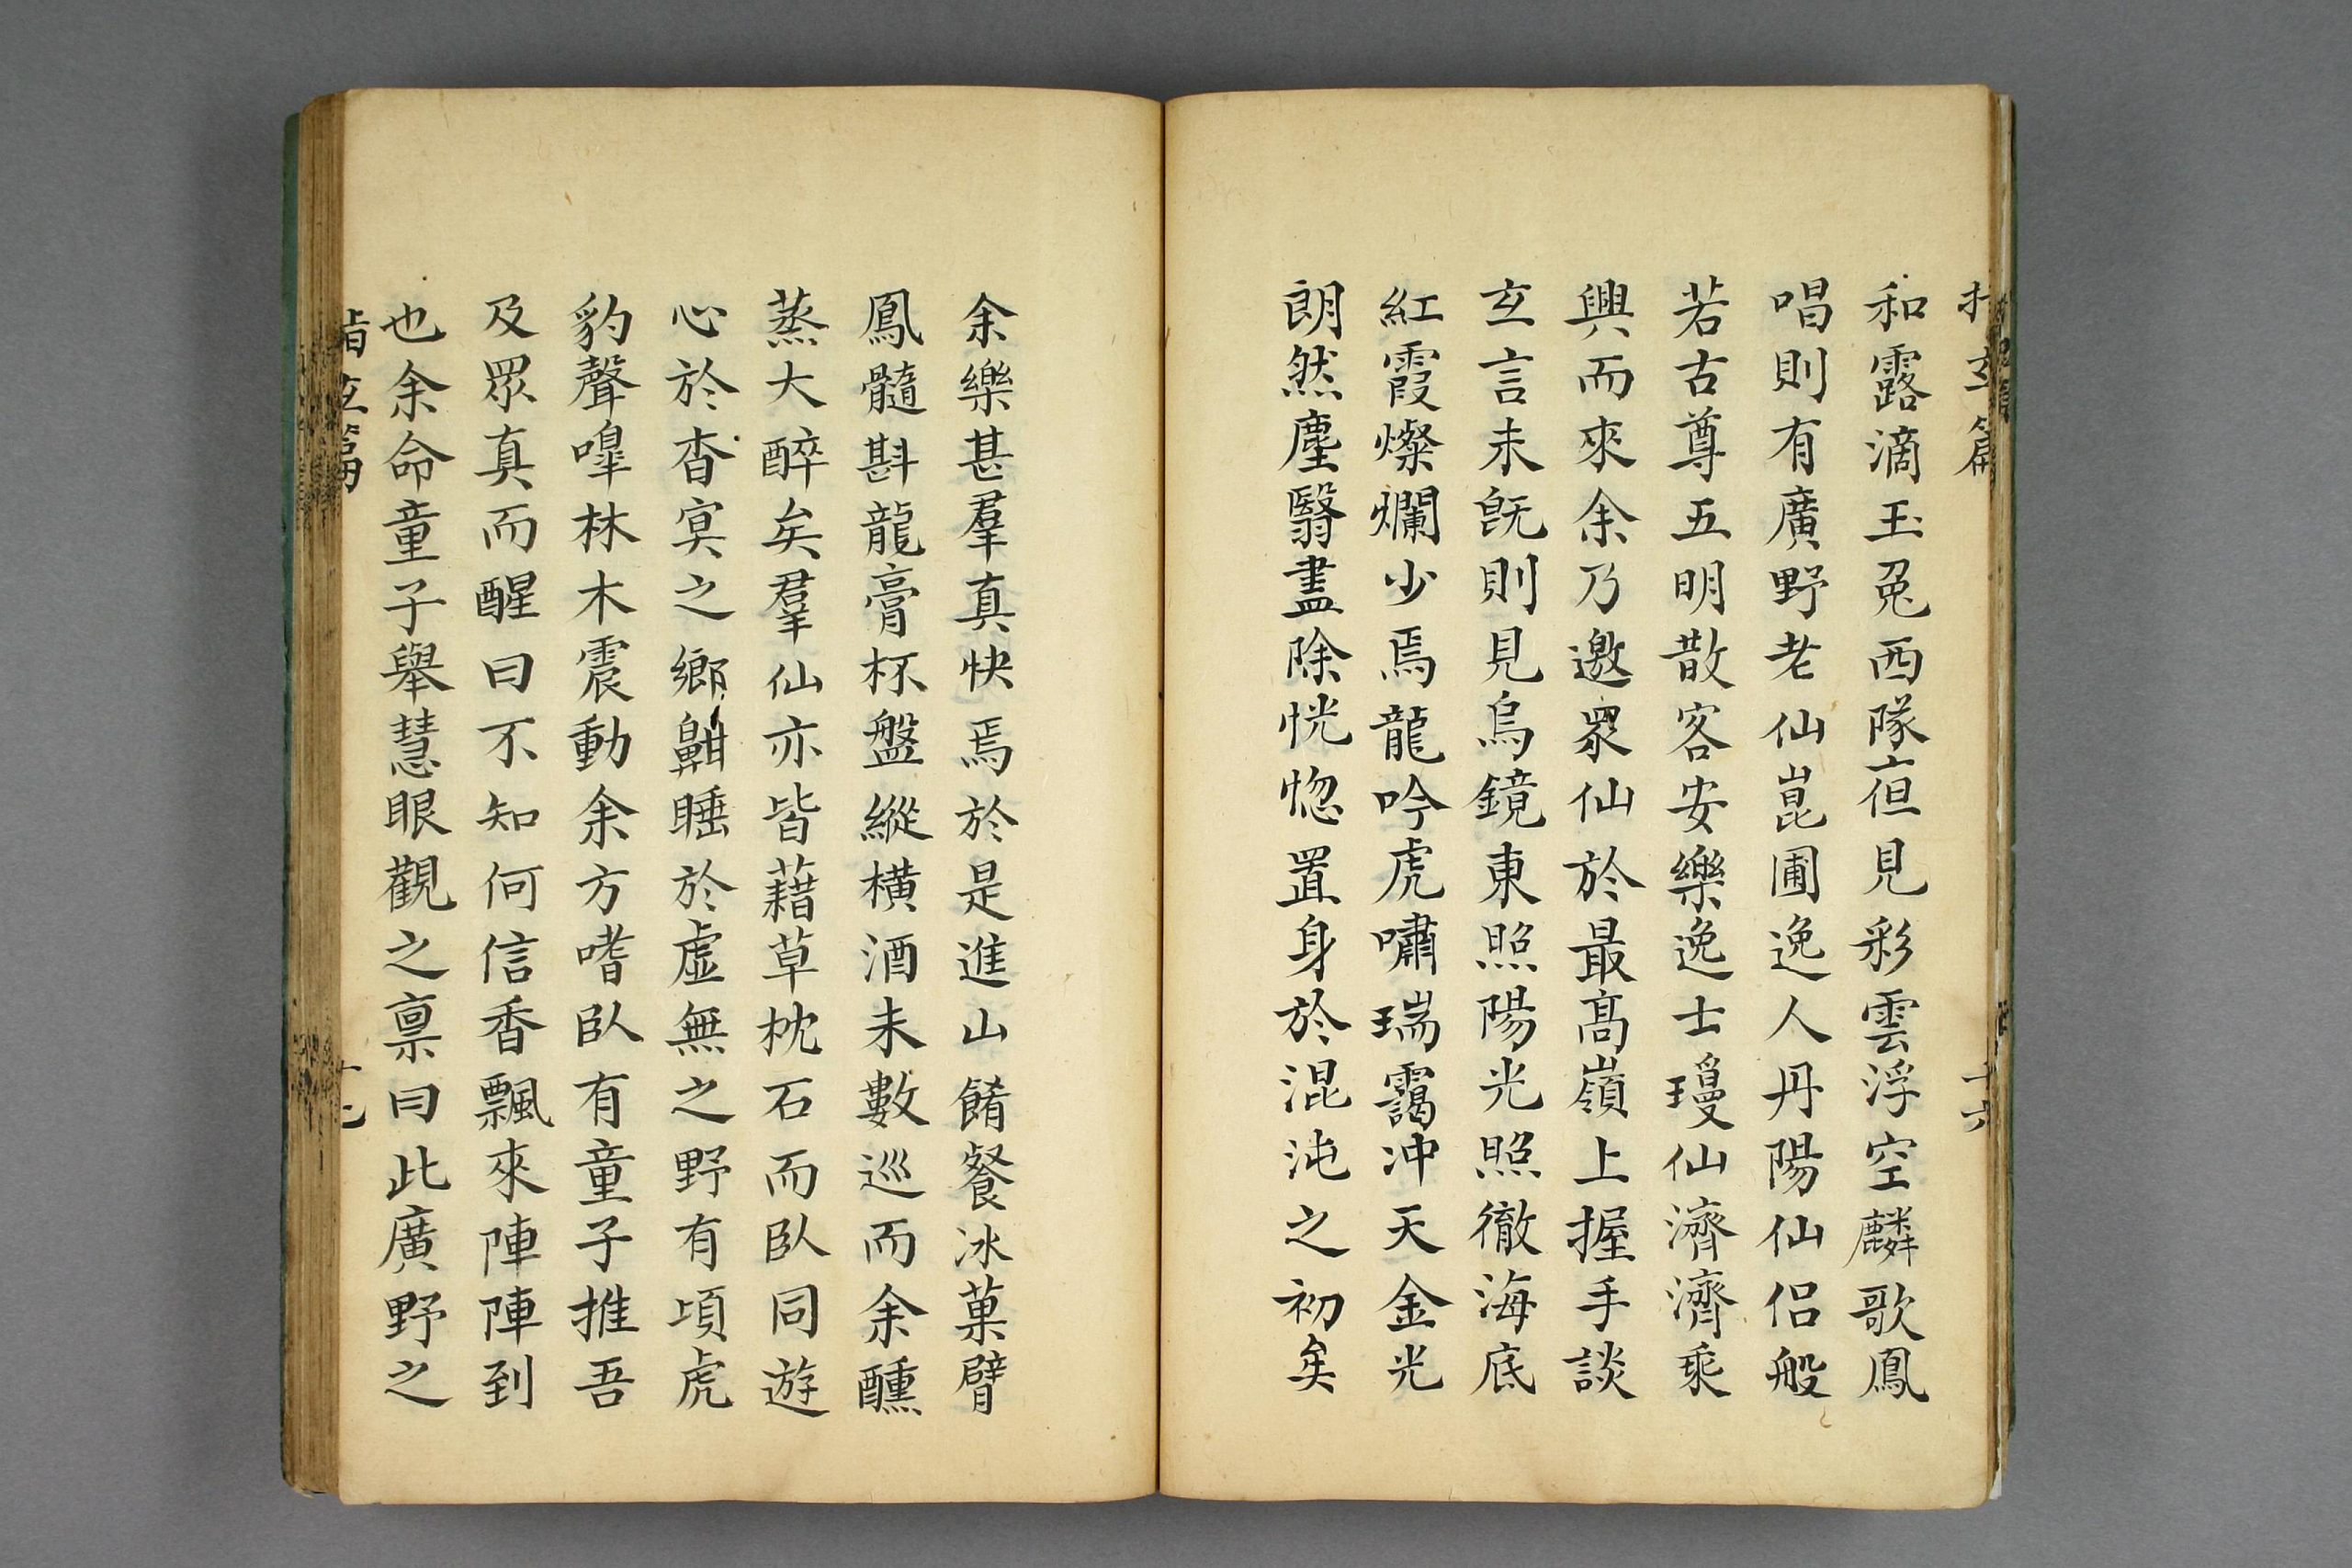 玄篇
十六
和露滴玉兔西隊但見彩雲浮空麟歌鳳
唱則有廣野老仙崑圃逸人丹陽仙侶般
若古尊五明散客安樂逸士璦仙濟濟乘
興而來余乃邀眾仙於最高嶺上握手談
玄言未旣則見烏鏡東照陽光照徹海底
紅霞燦爛少焉龍吟虎嘯瑞靄冲天金光
朗然塵翳盡除恍惚置身於混沌之初矣
余樂甚羣真快焉於是進山餚餐冰菓臂
鳳髓斟龍膏杯盤縱橫酒未數巡而余醺
蒸大醉矣羣仙亦皆藉草枕石而臥同遊
心於杳冥之鄉鼾睡於虛無之野有頃虎
豹聲嘷林木震動余方嗜臥有童子推吾
及眾真而醒曰不知何信香飄來陣陣到
也余命童子舉慧眼觀之禀曰此廣野之
指玄篇
十七